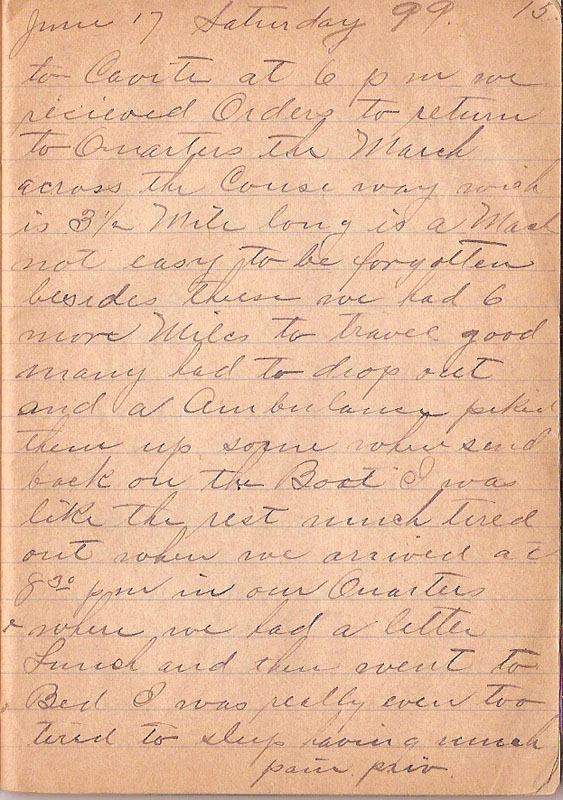 June 17 Saturday 99. 15.
to Cavite at 6 p m we
recieved Orders to return
to Quarters the March
across the Couse way wich
is 3½ Mile long is a Mach
not easy to be forgotten
besides these we had 6
more Miles to travel good
many had to drop out
and a Ambulance piked
them up some wher send
back on the Boat I was
like the rest much tired
out when we arrived at
8 30 pm in our Quarters
where we had a letter
Lunch and then went to
Bed I was really even too
tired to sleep having much
pain